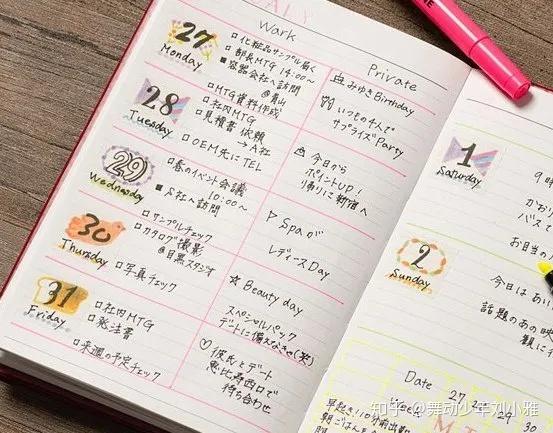 Work
Private
27
Monday
□化粧品サンプル届く
□部長MTG 14:00〜
■容器会社へ訪問
@青山
みゆきBirthday
いつもの4人で
サプライズParty
28
Tuesday
□MTG資料作成
□社内MTG
□見積書依頼
→A社
□OEM先にTEL
今日から
ポイントUP!
帰りに新宿へ
29
Wednesday
□春のイベント会議
10:00〜
■S社へ訪問
Spaが
レディースDay
30
Thursday
□サンプルチェック
□カタログ撮影
@目黒スタジオ
□写真チェック
☆Beauty day
スペシャルパック
デートに備えなきゃ(笑)
31
Friday
□社内MTG
□発注書
□来週の予定チェック
♡彼氏とデート
恵比寿西口で
待ち合わせ
1
Saturday
9時
かおり
バスで
お目当の
2
Sunday
今日は あい
話題のあの映
観に
Date 27 2
29 30
早起き(10分前出勤
朝ごはんを
知乎 @舞动少年刘小雅